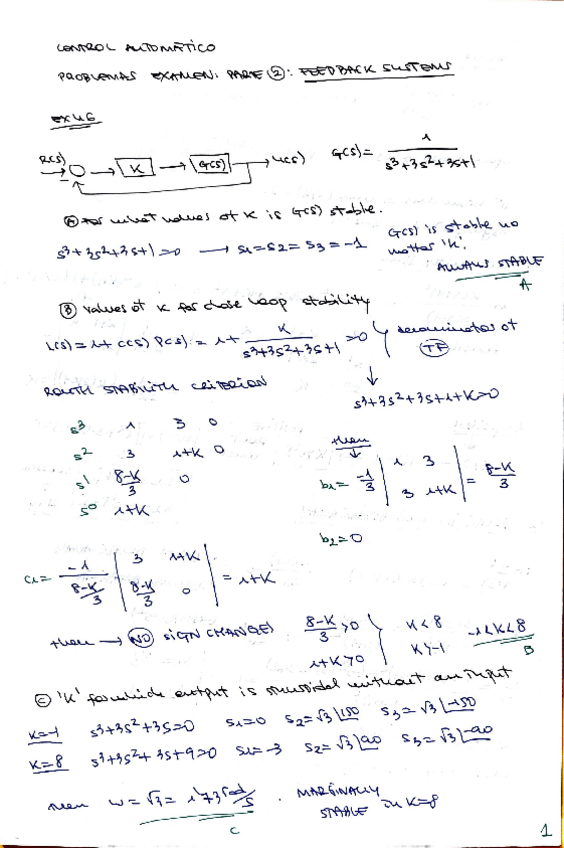 CONTROL AUTOMÁTICO
PROBLEMAS EXAMEN: PARTE ②: FEEDBACK SYSTEMS
EX46
R(s) − K G(s) Y(s) G(s) = 1 / s³+3s²+3s+1
Ⓐ For what values of K is G(s) stable.
s³+3s²+3s+1=0 → s1=s2=s3=-1
G(s) is stable no
matter 'K'.
ALWAYS STABLE
A
Ⓑ Values of K for close loop stability
L(s) = 1+C(s)P(s) = 1+ K / s³+3s²+3s+1 =0 } denominator of
TF
s³+3s²+3s+1+K=0
ROUTH STABILITY CRITERION
s³ 1 3 0
s² 3 1+K 0
s¹ 8-K/3 0
s⁰ 1+K
then
b1= -1/3 | 1 3 | = 8-K/3
| 3 1+K |
b2=0
c1= -1 / 8-K/3 | 3 1+K | = 1+K
| 8-K/3 0 |
then → NO SIGN CHANGES 8-K/3 >0 } K<8 -1<K<8
1+K>0 } K>-1
B
Ⓒ 'K' for which output is sinusoidal without an input
K=-1 s³+3s²+3s=0 s1=0 s2=√3∠150 s3=√3∠-150
K=8 s³+3s²+3s+9=0 s1=-3 s2=√3∠90 s3=√3∠-90
then w=√3=1'73 rad/s . MARGINALLY
STABLE in K=8
C
1